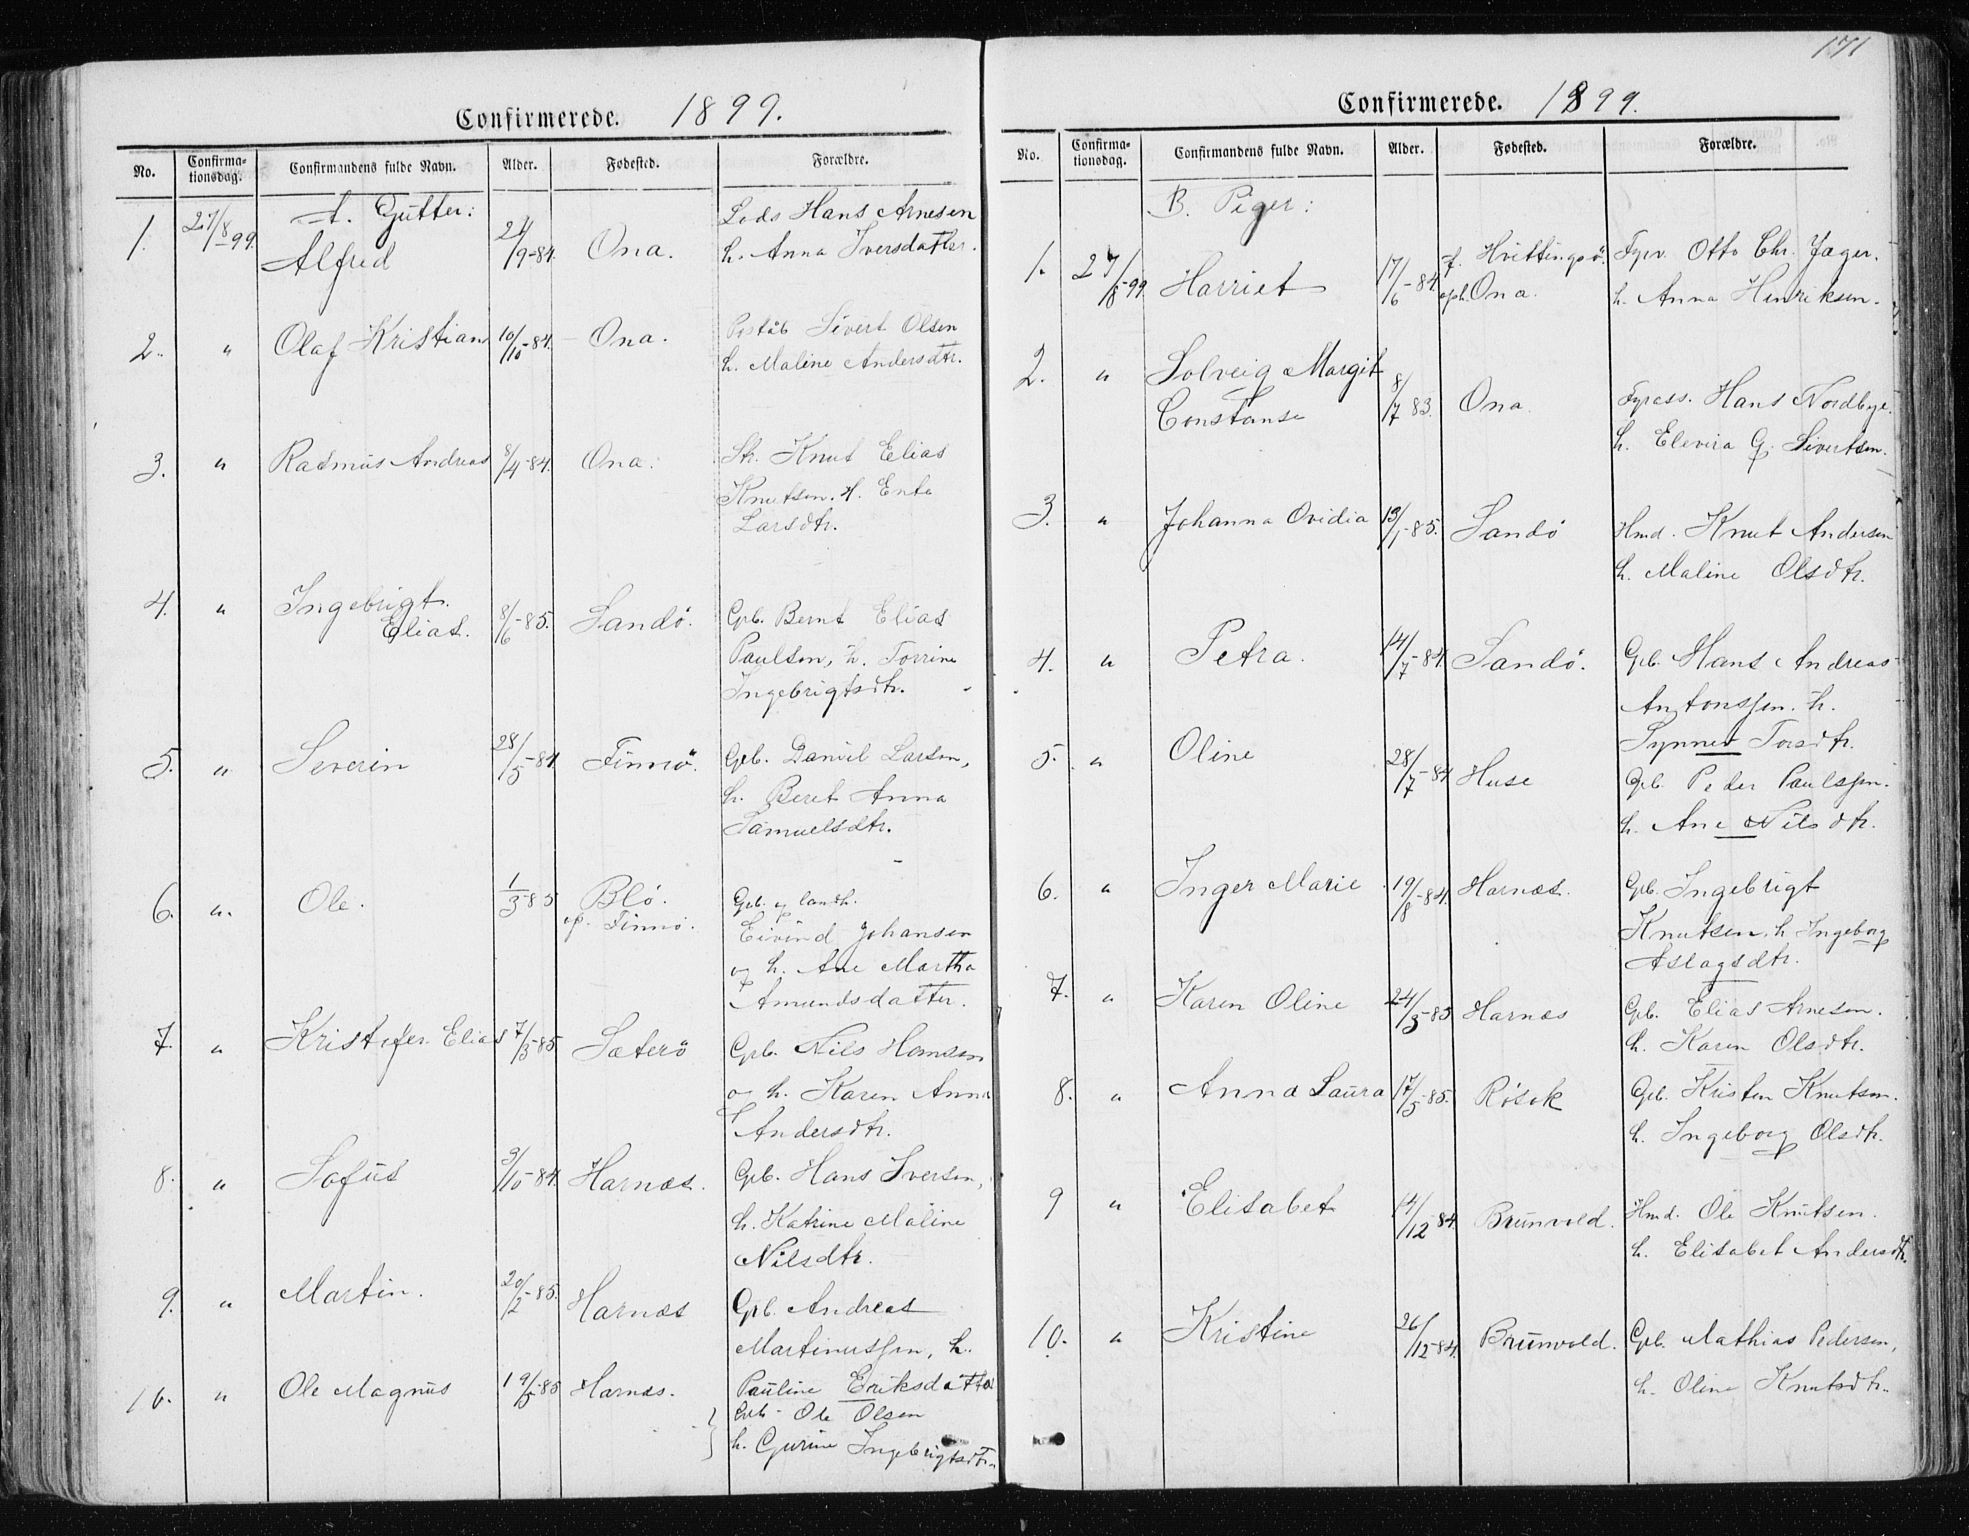 171
Confirmerede. 1899.
No. Confirma-tionsdag. Confirmandens fulde Navn. Alder. Fødested. Forældre.
A. Gutter:
1. 27/8 99. Alfred 24/9-84. Ona. Lods Hans Arnesen
h. Anna Iversdatter.
2. " Olaf Kristian 10/10-84. Ona. Sivert Olsen
h. Maline Andersdtr.
3. " Rasmus Andreas 8/4-84. Ona. Knut Elias
Knutsen. H.
Larsdtr.
4. " Ingebrigt Elias. 8/6-85. Sandö. Gpb. Bernt Elias
Paulsen, h. Torrine
Ingebrigtsdtr.
5. " Severin 28/5-84. Finnö. Gpb. Daniel Larsen,
h. Beret Anna
Samuelsdtr.
6. " Ole. 1/3 85 Blö. op. Finnö. Gpb. og landh.
Eivind Johansen
og h. Ane Martha
Amundsdatter.
7. " Kristofer Elias 7/3-85 Sæterö Gpb. Nils Hansen
og h. Karen Anna
Andersdtr.
8. " Sofus 9/10-84. Harnæs. Gpb. Hans Iversen,
h. Katrine Maline
Nilsdtr.
9. " Martin. 20/2-85. Harnæs Gpb. Andreas
Martinussen, h.
Pauline Eriksdatter
10. " Ole Magnus 19/5-85 Harnæs. Gpb. Ole Olsen
h. Gurine Ingebrigtsdtr.
Confirmerede. 1899.
No. Confirma-tionsdag. Confirmandens fulde Navn. Alder. Fødested. Forældre.
B. Piger:
1. 27/8-99 Harriet 17/6-84. f. Hvittingsö. oph. Ona. Fyrv. Otto Chr. Jæger.
h. Anna Henriksen.
2. " Solveig Margit
Constanse 8/7 83. Ona. Fyrass. Hans Nordbye.
h. Elevira G. Sivertsen.
3. " Johanna Ovidia 13/1-85. Sandö Hmd. Knut Andersen
h. Maline Olsdtr.
4. " Petra. 14/7-84. Sandö. Gpb. Hans Andreas
Antonssen. h.
Synnev Torsdtr.
5. " Oline 28/7-84 Huse Gpb. Peder Paulssen.
h. Ane Nilsdtr.
6. " Inger Marie 19/8-84. Harnæs. Gpb. Ingebrigt
Knutsen, h. Ingeborg
Aslagsdtr.
7. " Karen Oline 24/3-85 Harnæs Gpb. Elias Arnesen.
h. Karen Olsdtr.
8. " Anna Laura 17/5-85. Rösok Gpb. Kristen Knutsen.
h. Ingeborg Olsdtr.
9 " Elisabet 14/12 84. Brunvold. Hmd. Ole Knutsen.
h. Elisabet Andersdtr.
10. " Kristine 26/12-84. Brunvold. Gpb. Mathias Pedersen,
h. Oline Knutsdtr.